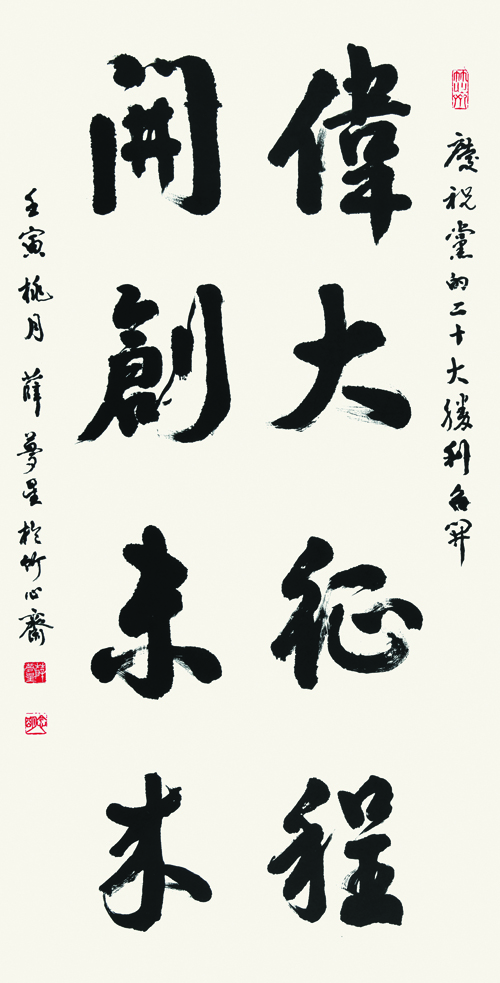 慶祝黨的二十大勝利召開
偉大征程
開創未來
壬寅桃月 薛夢星於竹心齋